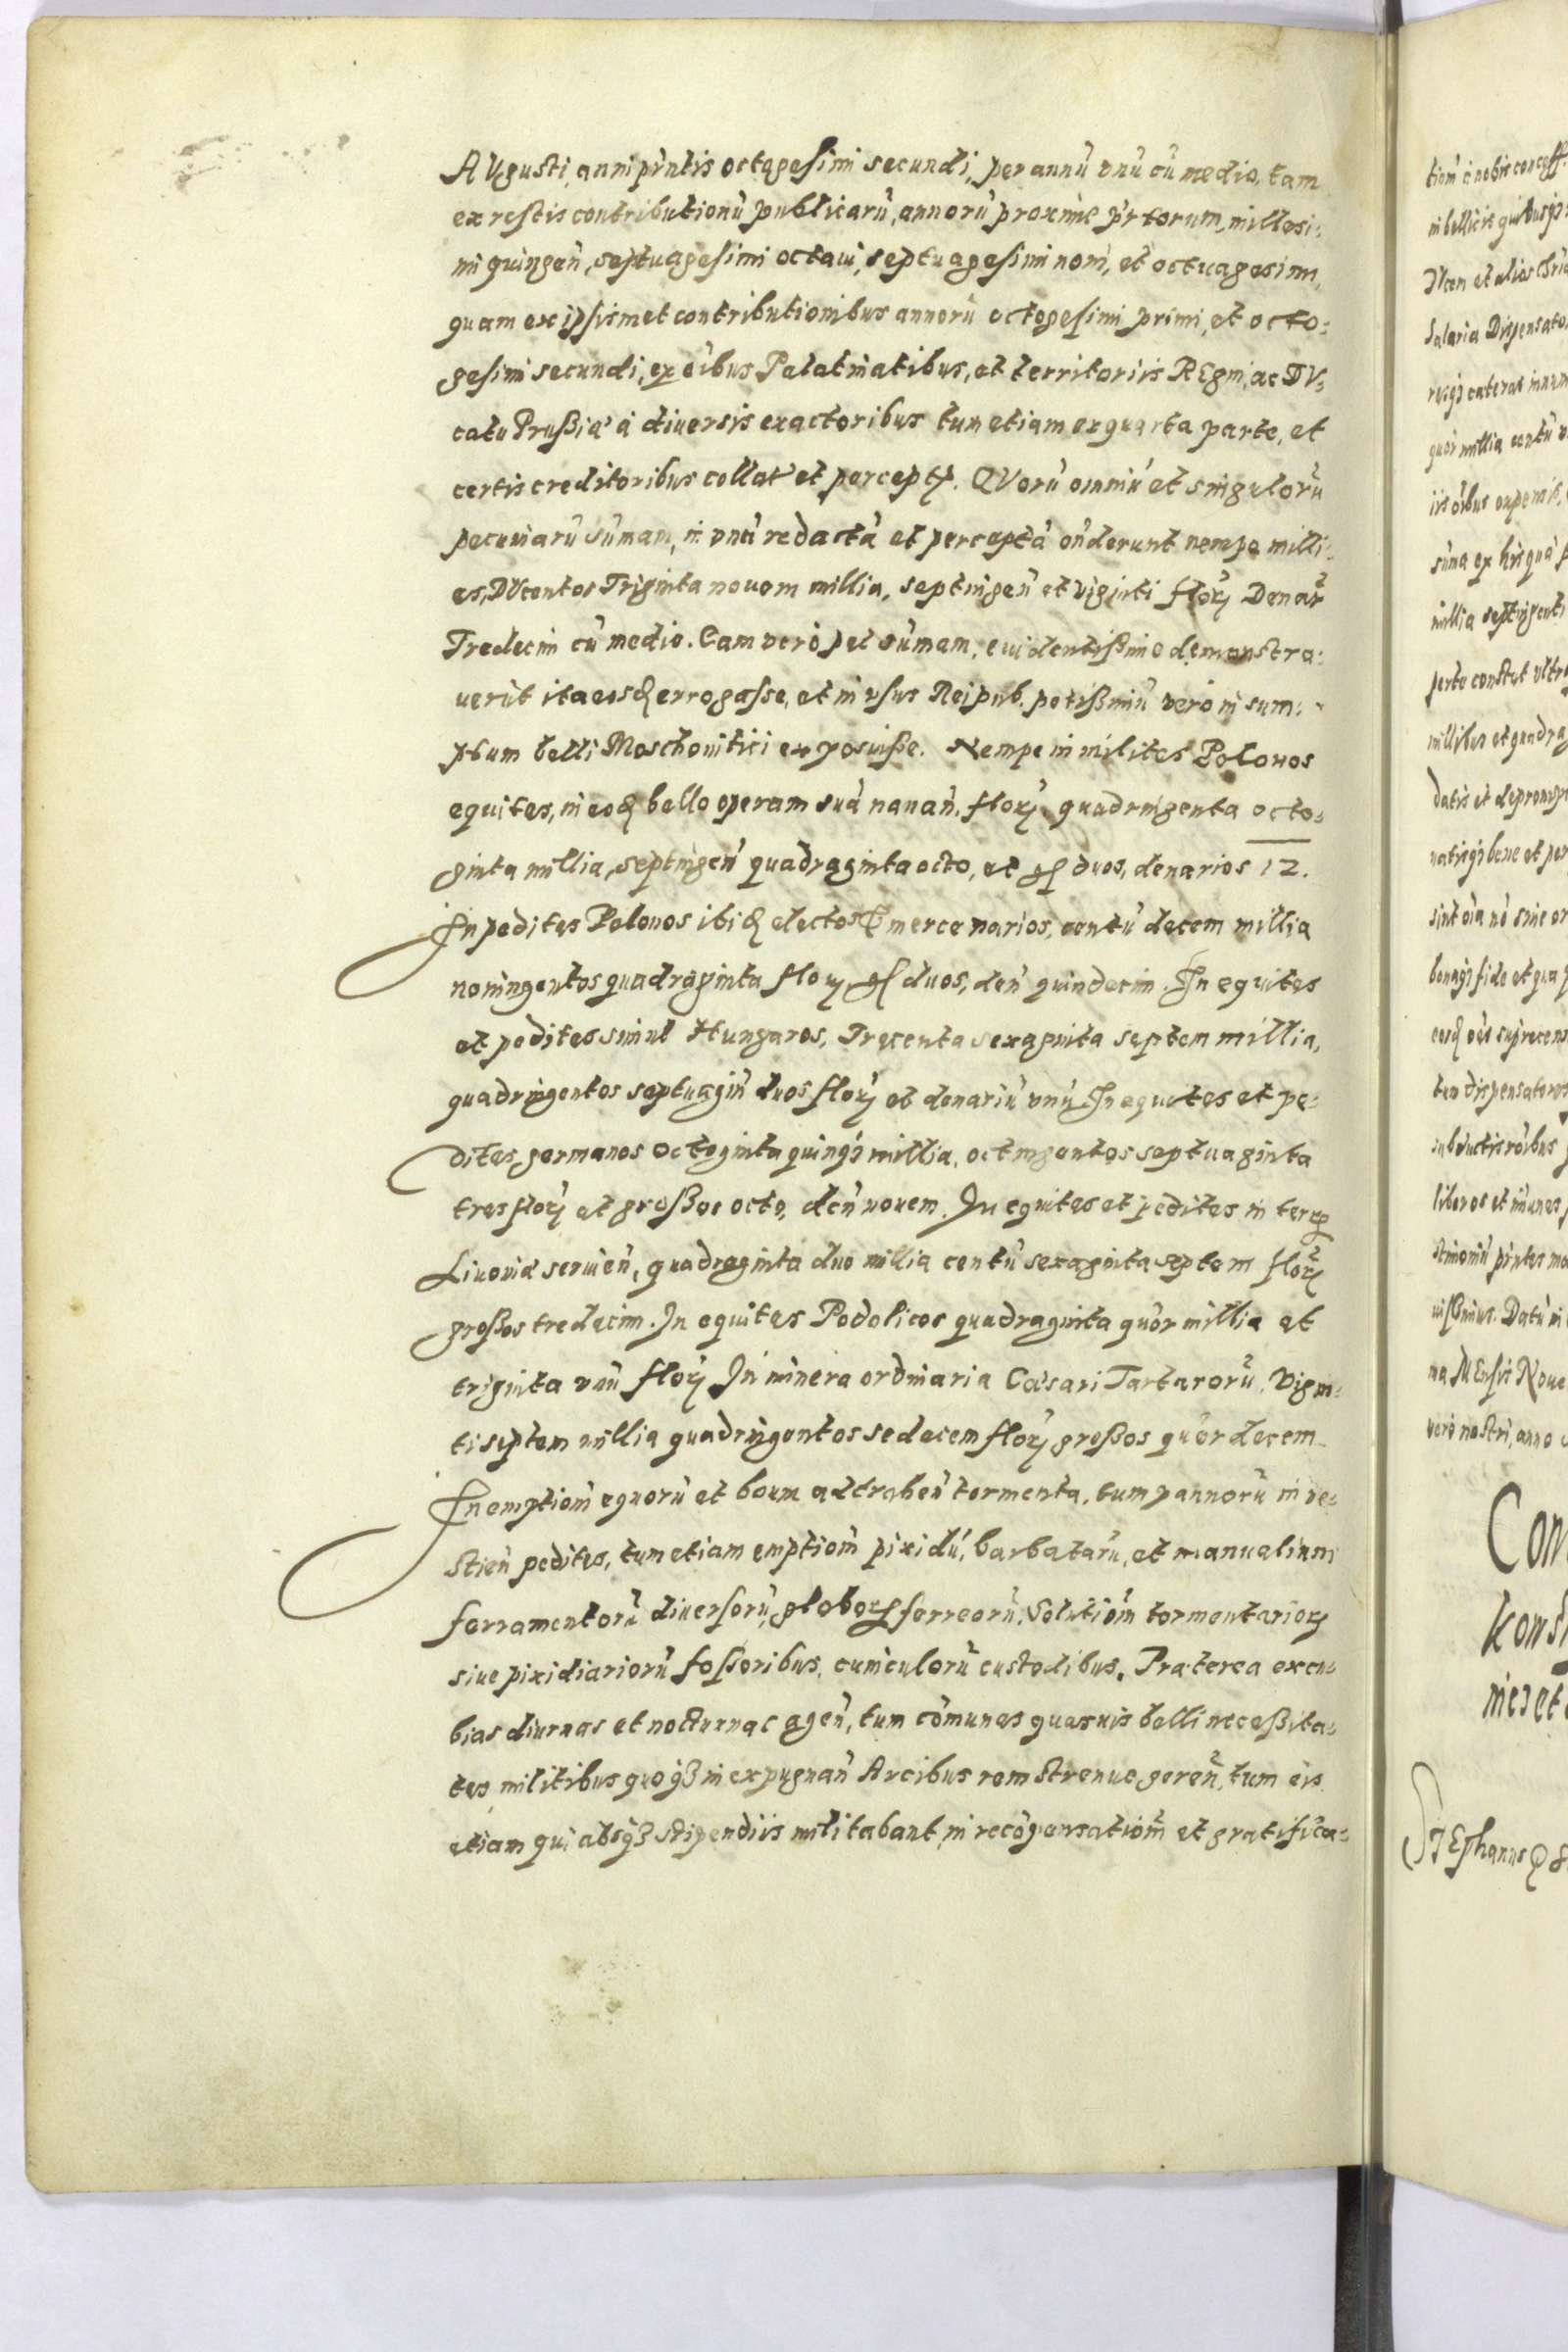 AVgusti, anni pñtis octagesimi secundi, per annũ vnũ cũ medio, tam
ex restis contributionũ publicarũ, annorũ proxime pŕtorum, millesi:
mi quingeñ, septuagesimi octaui, septuagesimi noni, et octuagesimi,
quam ex ipsismet contributionibus annorũ octogesimi primi, et octo:
gesimi secundi, ex oĩbus Palatinatibus, et territoriis REgni, ac DV:
catu Prußiæ à diuersis exactoribus tum etiam ex quarta parte, et
certis creditoribus collat et percept. QVorũ omniũ et singulorũ
pecuniarũ sũmam, in vnũ redactã et perceptã oñderunt nempe milli:
es, DVcentos Triginta nouem millia, septingeñ et viginti floꝝ Denar
Tredecim cũ medio. Eam verò sũmam, euidentißime demonstra:
uerũt ita eosđ errogasse, et in vsus Reipub. potißimũ verò in sum:
ptum belli Moschouitici exposuiße. Nempe in milites Polonos
equites, in eođ bello operam suã nauañ, floꝝ quadringenta octo:
ginta millia, septingeñ quadraginta octo, et gř duos, denarios 12.
In pedites Polonos ibiđ electos & mercenarios, centũ decem millia
noningentos quadraginta floꝝ, gř duos, deñ quindecim. In equites
et pedites simul Hungaros, Trecenta sexaginta septem millia,
quadringentos septuagiñ duos floꝝ et denariũ vnũ. In equites et pe:
dites germanos octoginta quinqȝ millia, octingentos septuaginta
tres floꝝ et großos octo, deñ nouem. In equites et pedites in
Liuoniæ seruieñ, quadraginta duo millia centũ sexaginta septem floꝝ
großos tredecim. In equites Podolicos quadraginta quõr millia et
triginta vnũ floꝝ In minera ordinaria Cæsari Tartarorũ, Vigin:
ti septem millia quadringentos sedecem floꝝ großos quõrdecem
In emptiom̃ equorũ et boum ad trahen̄ tormenta, tum pannorũ in ve:
stieñ pedites, tum etiam emptiom̃ pixidũ, barbatarũ, et manualium
ferramentorũ diuersorũ, globoꝝ ferreorũ, Solutiom̃ tormentarioꝝ
siue pixidiariorũ foßoribus, cuniculorũ custodibus. Præterea excu:
bias diurnas et nocturnas ageñ, tum cõmunes quasuis belli neceßita:
tes militibus quoqȝ in expugnañ Arcibus rem strenue gereñ, tum eis
etiam qui absqȝ stipendiis militabant, in recõpensatiom̃ et gratifica:
tiom̃ à nobis conceß
in bellicis quibusqȝ
Salaria Dispensato
millia septigenti
perte constat vltra
millibus et quadrag
natisqȝ bene et per
tuo dispensatores
liberos et im̃unes
uißimus. Datũ in
na MEnsis Noue
verò nostri, anno
Con
STEphanus